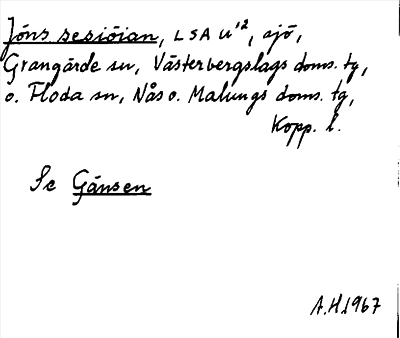 Jöns sesiöian, LSA U'², sjö,
Grangärde sn, Västerbergslags doms. tg,
o. Floda sn, Nås o. Malungs doms. tg,
Kopp. l.
Se Gänsen
A.H.1967